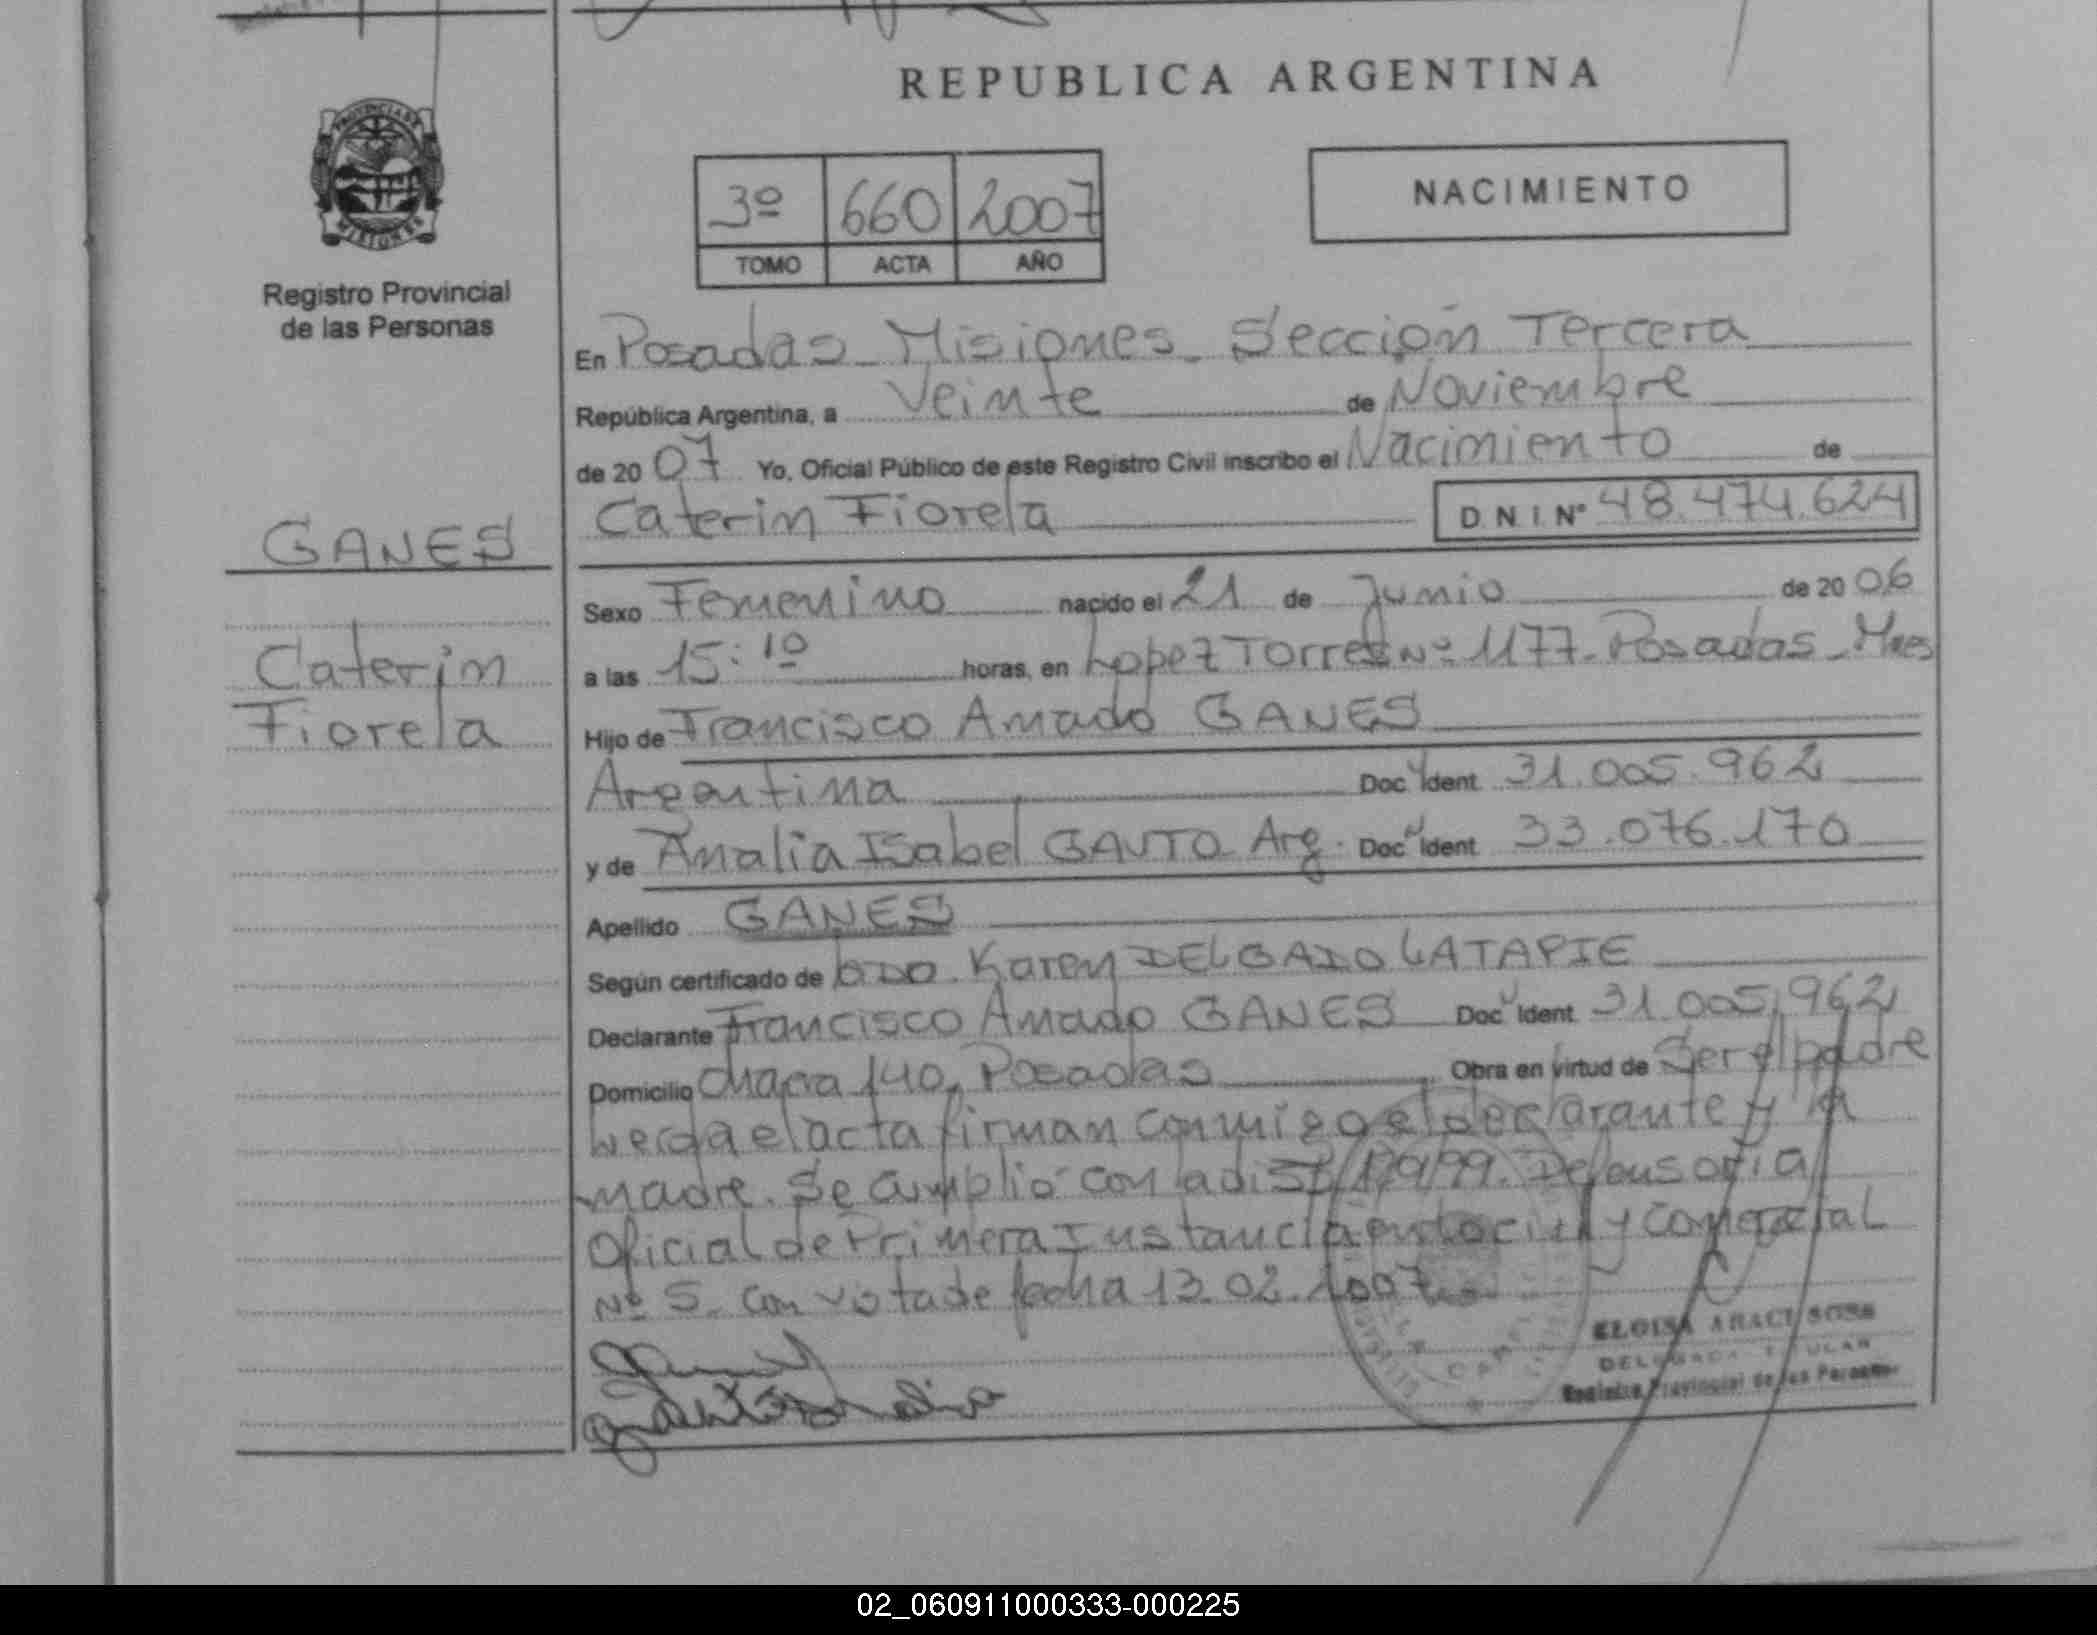 REPUBLICA ARGENTINA
PROVINCIA DE
MISIONES
Registro Provincial
de las Personas
3º 660 2007
TOMO ACTA AÑO
NACIMIENTO
En Posadas Misiones. Sección Tercera
República Argentina, a Veinte de Noviembre
de 20 07 Yo, Oficial Público de este Registro Civil inscribo el Nacimiento de
Caterin Fiorela D N I Nº 48.474.624
GANES
Caterin
Fiorela
Sexo Femenino nacido el 21 de Junio de 20 06
a las 15:10 horas, en Lopez Torres Nº 1177. Posadas - Mnes
Hijo de Francisco Amado GANES
Argentina Doc Ident 31.005.962
y de Analia Isabel GAUTO Arg. Doc Ident 33.076.170
Apellido GANES
Según certificado de Karen DELGADO LATAPIE
Declarante Francisco Amado GANES Doc Ident 31.005.962
Domicilio chacra 140, Posadas Obra en virtud de Ser el padre
el acta firman conmigo el declarante y la
madre. Se cumplió con la 19/99. Defensoria
Oficial de Primera Instancia en lo civil y Comercial
Nº 5. Con vista de fecha 13.02.2007
ELOISA ARACI SOSA
DELEGADA TITULAR
Registro Provincial de las Personas
02_060911000333-000225